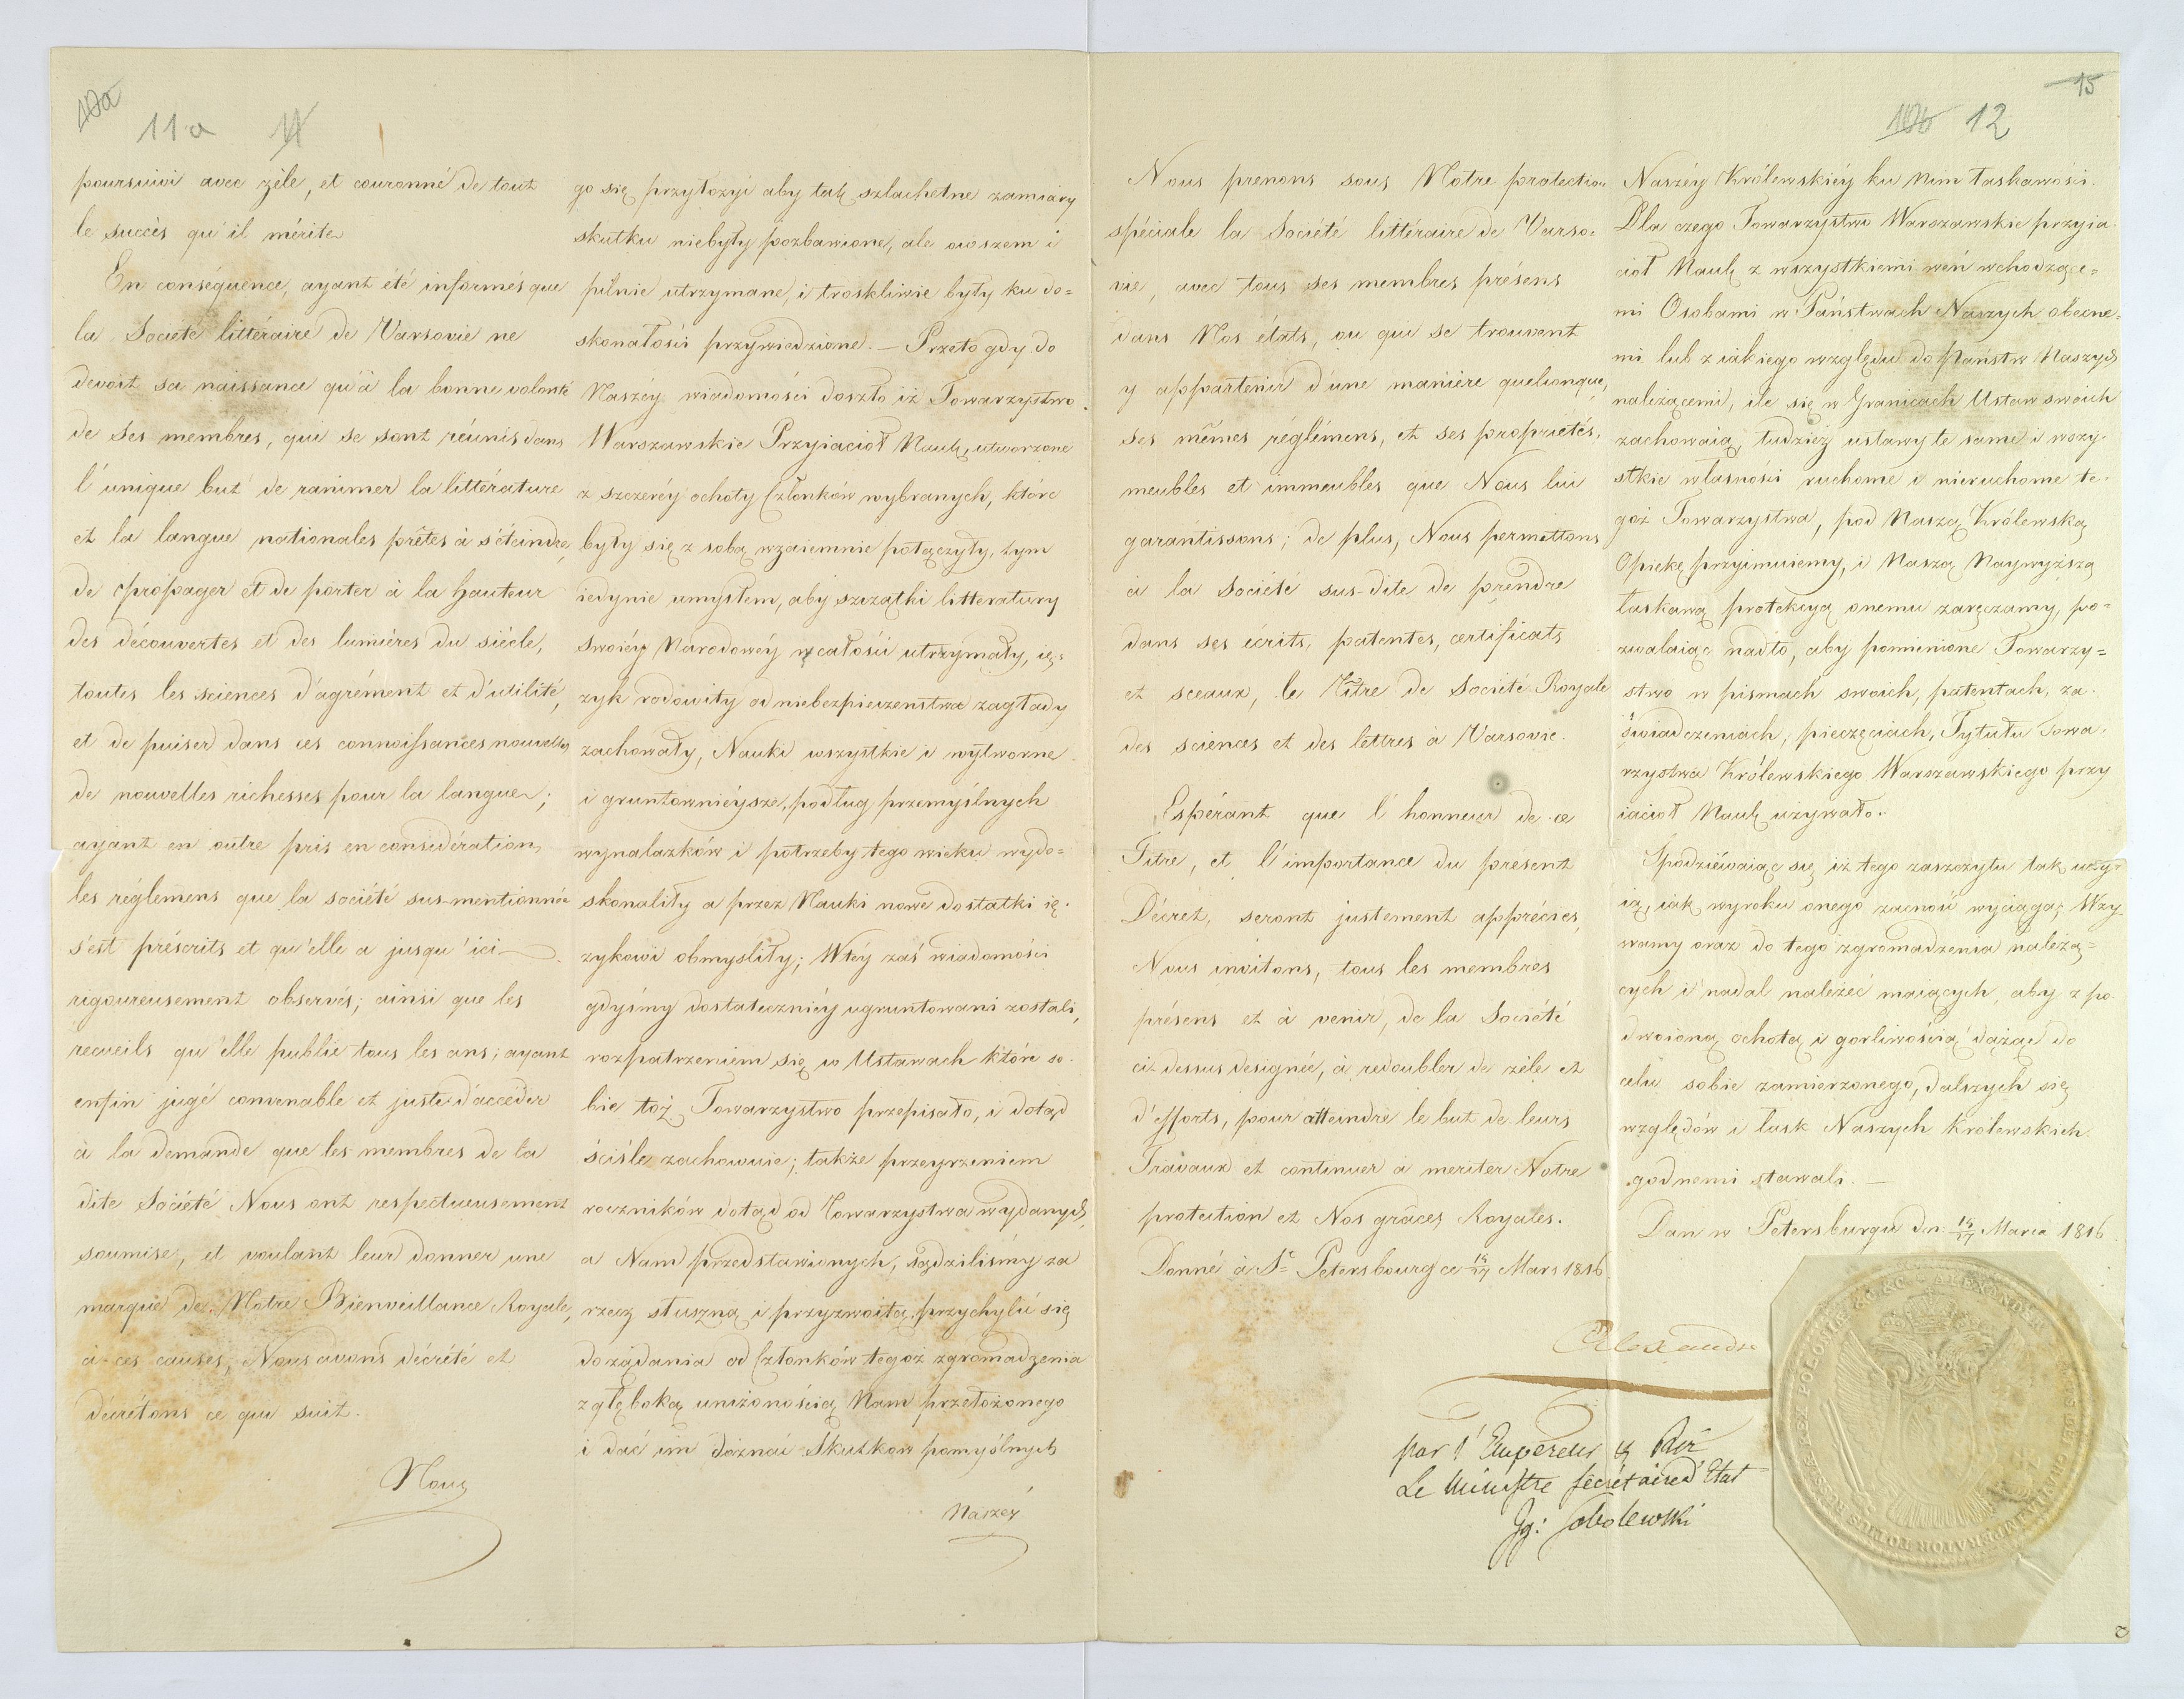 10a
11a 11
poursuivi avec zèle, et couronné de tout
le succès qu'il mérite
En conséquence, ayant été informés que
la Société littéraire de Varsovie ne
devoit sa naissance qu'à la bonne volonté
de ses membres, qui se sont réunis dans
l'unique but de ranimer la littérature
et la langue nationales prêtes à s'éteindre,
de propager et de porter à la hauteur
des découvertes et des lumières du siècle,
toutes les sciences d'agrément et d'utilité,
et de puiser dans ces connoissances nouvelles
de nouvelles richesses pour la langue;
ayant en outre pris en considération,
les réglemens que la société sus-mentionnée
s'est préscrits et qu'elle a jusqu'ici
rigoureusement observés; ainsi que les
recueils qu'elle publie tous les ans; ayant
enfin jugé convenable et juste d'accéder
à la demande que les membres de la
dite Société Nous ont respectueusement
soumise, et voulant leur donner une
marque de Notre Bienveillance Royale,
à ces causes, Nous avons décrété et
décrétons ce qui suit.
Nous
go się przyłożyi aby tak szlachetne zamiary
skutku niebyły pozbawione, ale owszem i
pilnie utrzymane, i troskliwie były ku do=
skonałości przywiedzione. — Przeto gdy do
Naszéy wiadomości doszło iż Towarzystwo
Warszawskie Przyiacioł Nauk, utworzone
z szczeréy ochoty Członków wybranych, które
były się z sobą wzaiemnie połączyły, tym
iedynie umysłem, aby szczątki litteratury
swoiéy Narodowéy w całości utrzymały, ię=
zyk rodowity od niebezpieczenstwa zagłady
zachowały, Nauki wszystkie i wytworne
i gruntownieysze, podług przemyślnych
wynalazków i potrzeby tego wieku wydo=
skonaliły a przez Nauki nowe dostatki ię.
zykowi obmyśliły; Wtéy zaś wiadomości
gdyśmy dostateczniéy ugruntowani zostali,
rozpatrzeniem się w Ustawach które so.
bie toż Towarzystwo przepisało, i dotąd
ściśle zachowuie; także przeyrzeniem
roczników dotąd od Towarzystwa wydanych,
a Nam przedstawionych, sądziliśmy za
rzecz słuszną i przyzwoitą, przychylić się
do żądania od Członków tegoż zgromadzenia
z głęboką uniżonością Nam przełożonego
i dać im doznać skutkow pomyślnych
Naszéy
15
10b 12
Nous prenons sous Notre protection
spéciale la Société littéraire de Varso=
vie, avec tous ses membres présens
dans Nos états, ou qui se trouvent
y appartenir d'une manière quelconque,
ses mêmes réglémens, et ses propriétés,
meubles et immeubles que Nous lui
garantissons; de plus, Nous permettons
à la Société sus-dite de prendre
dans ses écrits, patentes, certificats
et sceaux, le Titre de Société Royale
des sciences et des lettres à Varsovie.
Espérant que l'honneur de ce
Titre, et l'importance du present
Décret, seront justement appréciés,
Nous invitons, tous les membres
présens et à venir, de la Société
ci-dessus designée, à redoubler de zéle et
d'efforts, pour atteindre le but de leurs
Travaux et continuer à meriter Notre
protection et Nos grâces Royales.
Donné à St Petersbourg ce 15/27 Mars 1816.
Alexandre
par l'Empereur & Roi
Le Ministre secrétaire d'Etat
Ig: Sobolewski
Naszéy Królewskiéy ku Nim łaskawości.
Dla czego Towarzystwo Warszawskie przyia.
ciół Nauk z wszystkiemi weń wchodzące=
mi Osobami w Państwach Naszych obecne=
mi lub z iakiego względu do Państw Naszych
należącemi, ile się w Granicach Ustaw swoich
zachowaią, tudzież ustawy te same i wszy.
stkie własności ruchome i nieruchome te.
goż Towarzystwa, pod Naszą Królewską
Opiekę przyimuiemy, i Naszą Naywyższą
łaskawą protekcyą onemu zaręczamy, po=
zwalaiąc nadto, aby pomienione Towarzy=
stwo w pismach swoich, patentach, za.
świadczeniach, pieczęciach, Tytułu Towa.
rzystwa Królewskiego Warszawskiego przy
iaciół Nauk używało.
Spodziéwaiąc się iż tego zaszczytu tak uży.
ią, iak wyroku onego zacność wyciąga; Wzy
wamy oraz do tego zgromadzenia należą=
cych i nadal należeć maiących, aby z po.
dwoioną ochotą i gorliwością dążąc do
celu sobie zamierzonego, dalszych się
względów i łask Naszych królewskich
godnemi stawali. —
Dan w Petersburgu dn. 15/27 Marca 1816.
ALEXANDER
IMPERATOR TOTIUS RUSSIÆ REX POLONIÆ &C. &C.